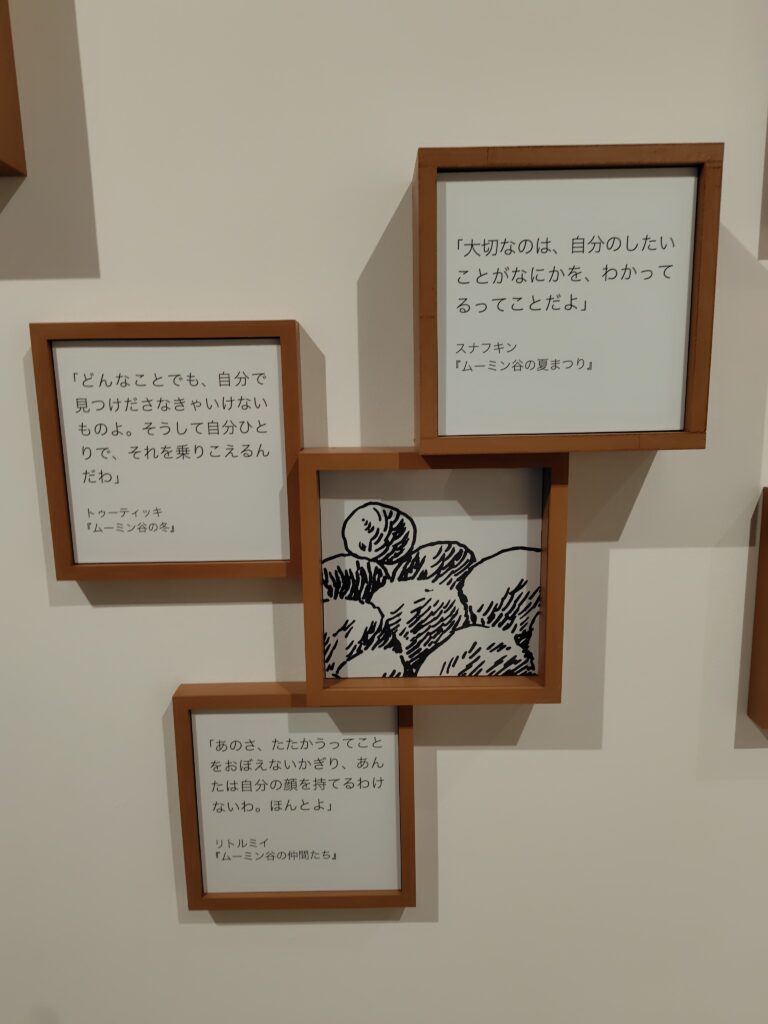 「大切なのは、自分のしたい
ことがなにかを、わかって
るってことだよ」
スナフキン
『ムーミン谷の夏まつり』
「どんなことでも、自分で
見つけださなきゃいけない
ものよ。そうして自分ひと
りで、それを乗りこえるん
だわ」
トゥーティッキ
『ムーミン谷の冬』
「あのさ、たたかうってこと
をおぼえないかぎり、あん
たは自分の顔を持てるわけ
ないわ。ほんとよ」
リトルミイ
『ムーミン谷の仲間たち』